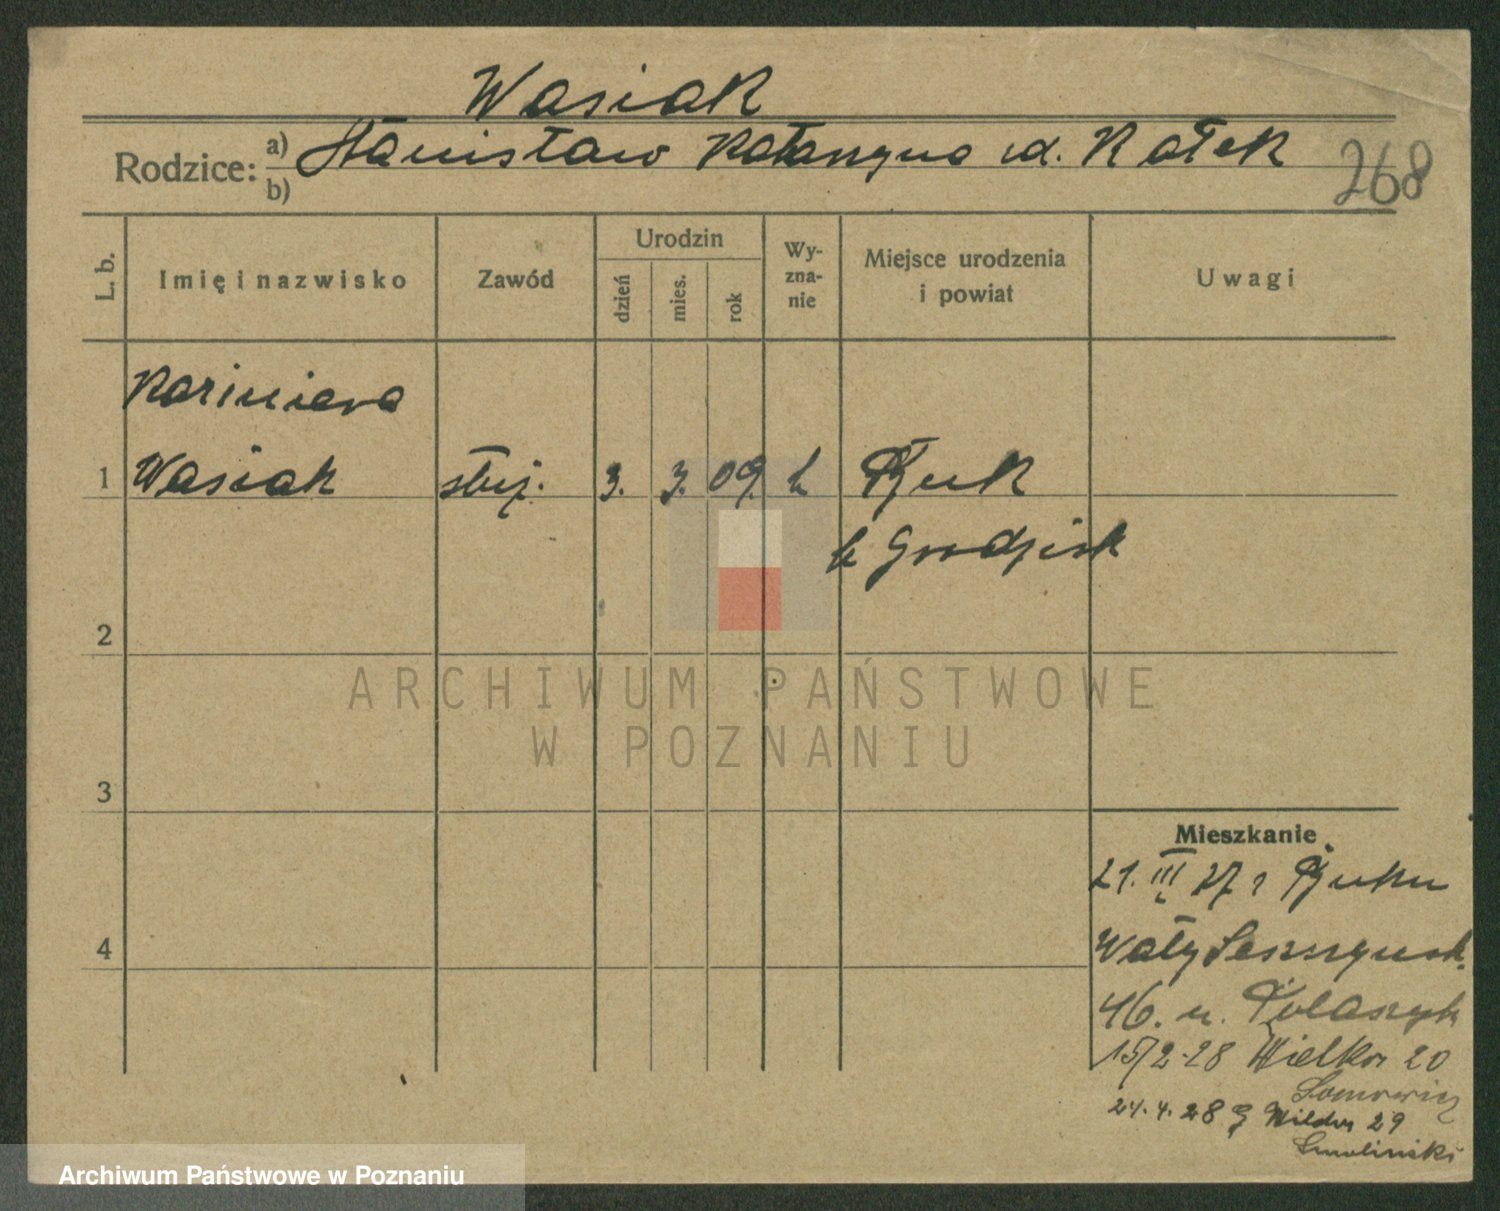 Wasiak
Rodzice: a) Stanisław Katarzyna ur. Ratek
b)
268
L. b.
Imię i nazwisko
Zawód
Urodzin
dzień
mies.
rok
Wy-
zna-
nie
Miejsce urodzenia
i powiat
Uwagi
Kazimiera
1 Wasiak służ. 3. 3. 09. k Ptuk
k Grodzisk
2
3
4
Mieszkanie
21. III 27 z
Wały
46. u.
15/2-28 Wielkа 20
24. 4. 28 Wilda 29
Smoliński
ARCHIWUM PAŃSTWOWE
W POZNANIU
Archiwum Państwowe w Poznaniu